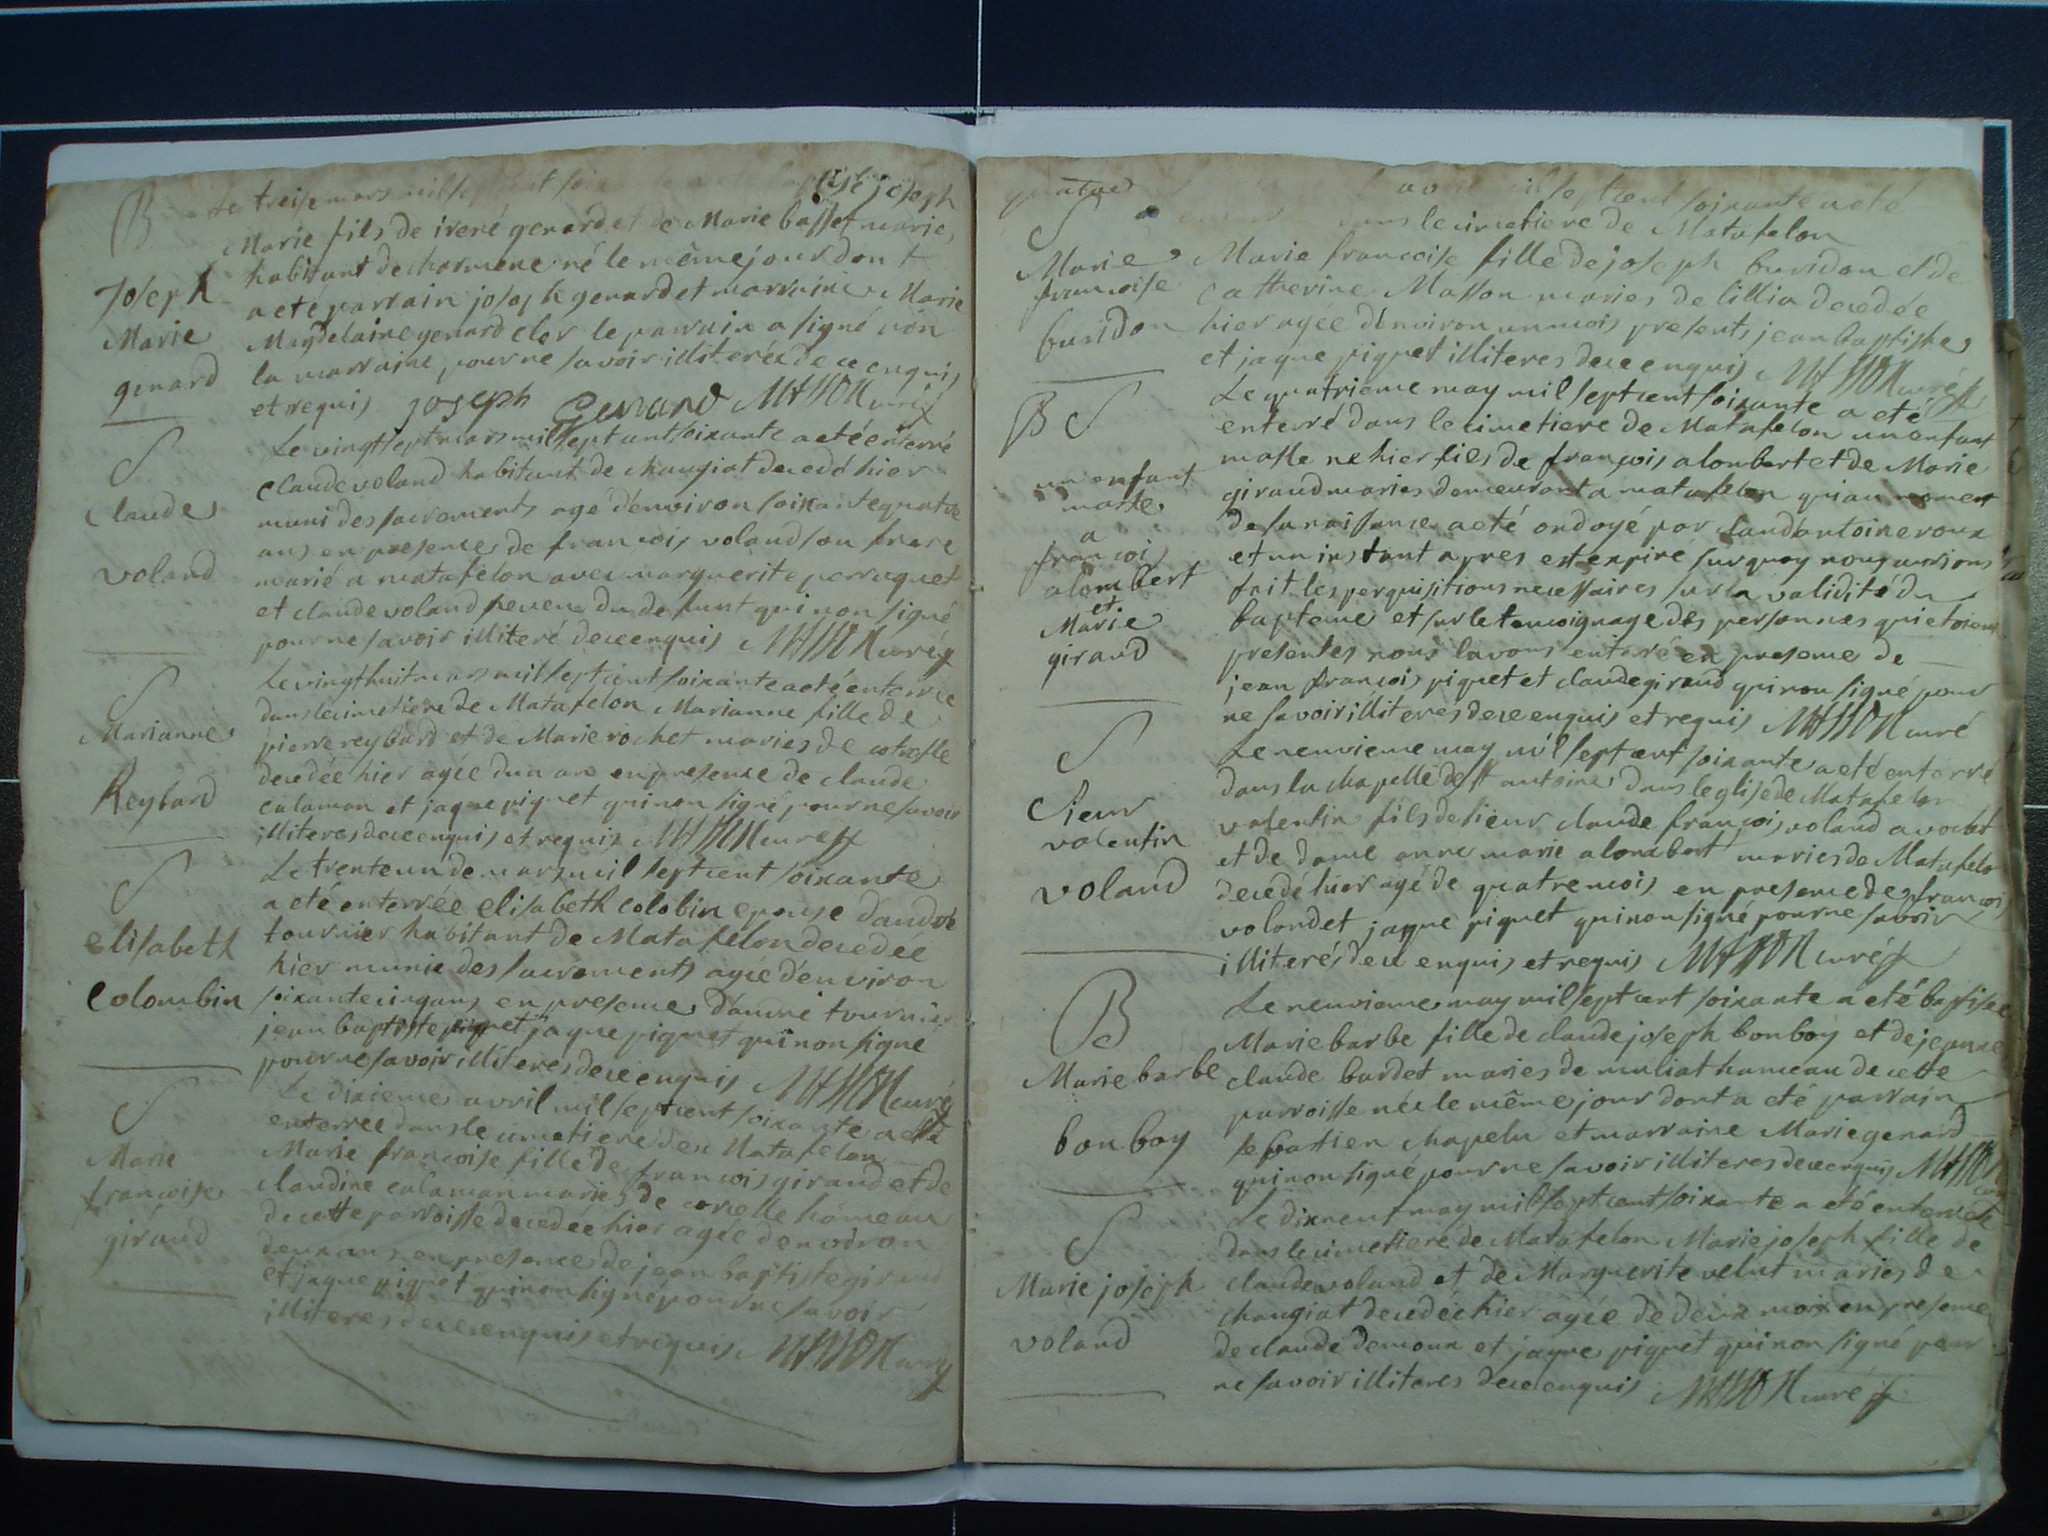 B
Joseph
Marie
genard
Le treise mars mil sept cent soi baptisé joseph
Marie fils de irené genard et de Marie basset maries
habitant de charmene né le même jour dont
a eté parrain joseph genard et marraine Marie
Magdelaine genard le parrain a signé non
la marraine pour ne savoir illiterée de ce enquis
et requis joseph Genard MASSON curé
S
Claude
voland
Le vingt sept mars mil sept cent soixante a eté enterré
Claude voland habitant de changiat decedé hier
muni des sacrements agé d'environ soixante quatre
ans en presence de francois voland son frere
marié a matafelon avec marguerite perruquet
et claude voland neveu du defunt qui non signé
pour ne savoir illiteré de ce enquis MASSON curé
S
Marianne
Reybard
Le vingt huit mars mil sept cent soixante a eté enterree
dans le cimetiere de Matafelon Marianne fille de
pierre reybard et de Marie rochet maries de
decedée hier agée dun an en presence de claude
calaman et jaque piquet qui non signé pour ne savoir
illiteres de ce enquis et requis MASSON curé
S
elisabeth
Colombin
Le trente un de mars mil sept cent soixante
a eté enterrée elisabeth colobin epouse dandré
tournier habitant de Matafelon decedee
hier munie des sacrements agée d'environ
soixante cinq ans en presence d'andré tournier
jean baptiste piquet jaque piquet qui non signé
pour ne savoir illiteres de ce enquis MASSON curé
S
Marie
francoise
giraud
Le dixieme avril mil sept cent soixante a eté
enterree dans le cimetiere de Matafelon
Marie francoise fille de francois giraud et de
claudine calaman maries de corcelle hameau
de cette parroisse decedée hier agée denviron
deux ans en presence de jean baptiste giraud
et jaque piquet qui non signé pour ne savoir
illiteres de ce enquis et requis MASSON curé
quatre
S
Marie
francoise
buridon
avril mil sept cent soixante a eté
dans le cimetiere de Matafelon
Marie francoise fille de joseph buridon et de
Catherine Masson maries de lillia decedée
hier agée d'environ un mois presents jean baptiste
et jaque piquet illiteres de ce enquis MASSON curé
B S
un enfant
masle
a
francois
alombert
et
Marie
giraud
Le quatrieme may mil sept cent soixante a eté
enterré dans le cimetiere de Matafelon un enfant
masle ne hier fils de françois alombert et de Marie
giraud maries demeurant a matafelon qui au moment
de sa naissance a eté ondoyé par claud antoine roux
et un instant apres est expiré sur quoy nous aurions
fait les perquisitions necessaires sur la validité du
bapteme et sur le temoignage des personnes qui etoient
presentes nous lavons enterré en presence de
jean françois piquet et claude giraud qui non signé pour
ne savoir illiterés de ce enquis et requis MASSON curé
S
Sieur
valentin
voland
Le neuvieme may mil sept cent soixante a eté enterré
dans la chapelle de st antoine dans leglise de Matafelon
valentin fils de sieur claude françois voland avocat
et de dame anne marie alombert maries de Matafelon
decedé hier agé de quatre mois en presence de francois
voland et jaque piquet qui non signé pour ne savoir
illiterés de ce enquis et requis MASSON curé
B
Marie barbe
bonboy
Le neuvieme may mil sept cent soixante a eté baptisée
Marie barbe fille de claude joseph bonboy et de jeanne
claude bardet maries de muliat hameau de cette
parroisse née le même jour dont a eté parrain
sebastien chapelu et marraine Marie genard
qui non signé pour ne savoir illiteres de ce enquis MASSON
curé
S
Marie joseph
voland
Le dixneuf may mil sept cent soixante a eté enterrée
dans le cimetiere de Matafelon Marie joseph fille de
claude voland et de Marguerite velut maries de
changiat decedée hier agée de deux mois en presence
de claude demoux et jaque piquet qui non signé pour
ne savoir illiteres de ce enquis MASSON curé